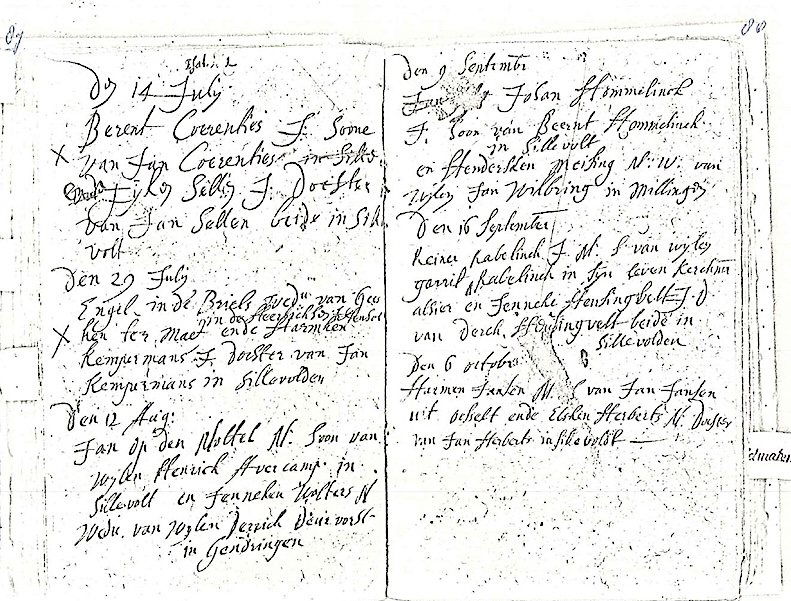 89
Den 14 July
Berent Coerenties J. Soone
X van Jan Coerenties in Sille
Sellen J. Docster
van Jan Sellen beide in Sil
volt
Den 29 July
Engel in de Briels wedu van
in de Heerlickh
X ken ter Maet ende Harmken
Kempermans J. Docster van Jan
Kempermans in Sillevolden
Den 12 Aug:
Jan op den M. Soon van
wylen Henrick Avercamp in
Sillevolt en Janneken Wolters N
Wedu. van Wylen Derrick Deurvorst
in Gendringen
90
Den 9 Septembr
Johan Hommelinck
J. Soon van Beernt Hommelinck
in Sillevolt
en Hendersken Meising N: W. van
Wylen Jan Wilbring in Millingen
Den 16 September
Reiner Rabelinck J M. S van wylen
Garrit Rabelinck in syn leven Kerckmr
alhier en Jenneke Hensingvelt J. D
van Derck Hensingvelt beide in
Sillevolden
Den 6 octobr
Harmen Jansen M. S van Jan Jansen
uit ochelt ende Elsken Herberts N. Docster
van Jan Herberts in Sillevolde